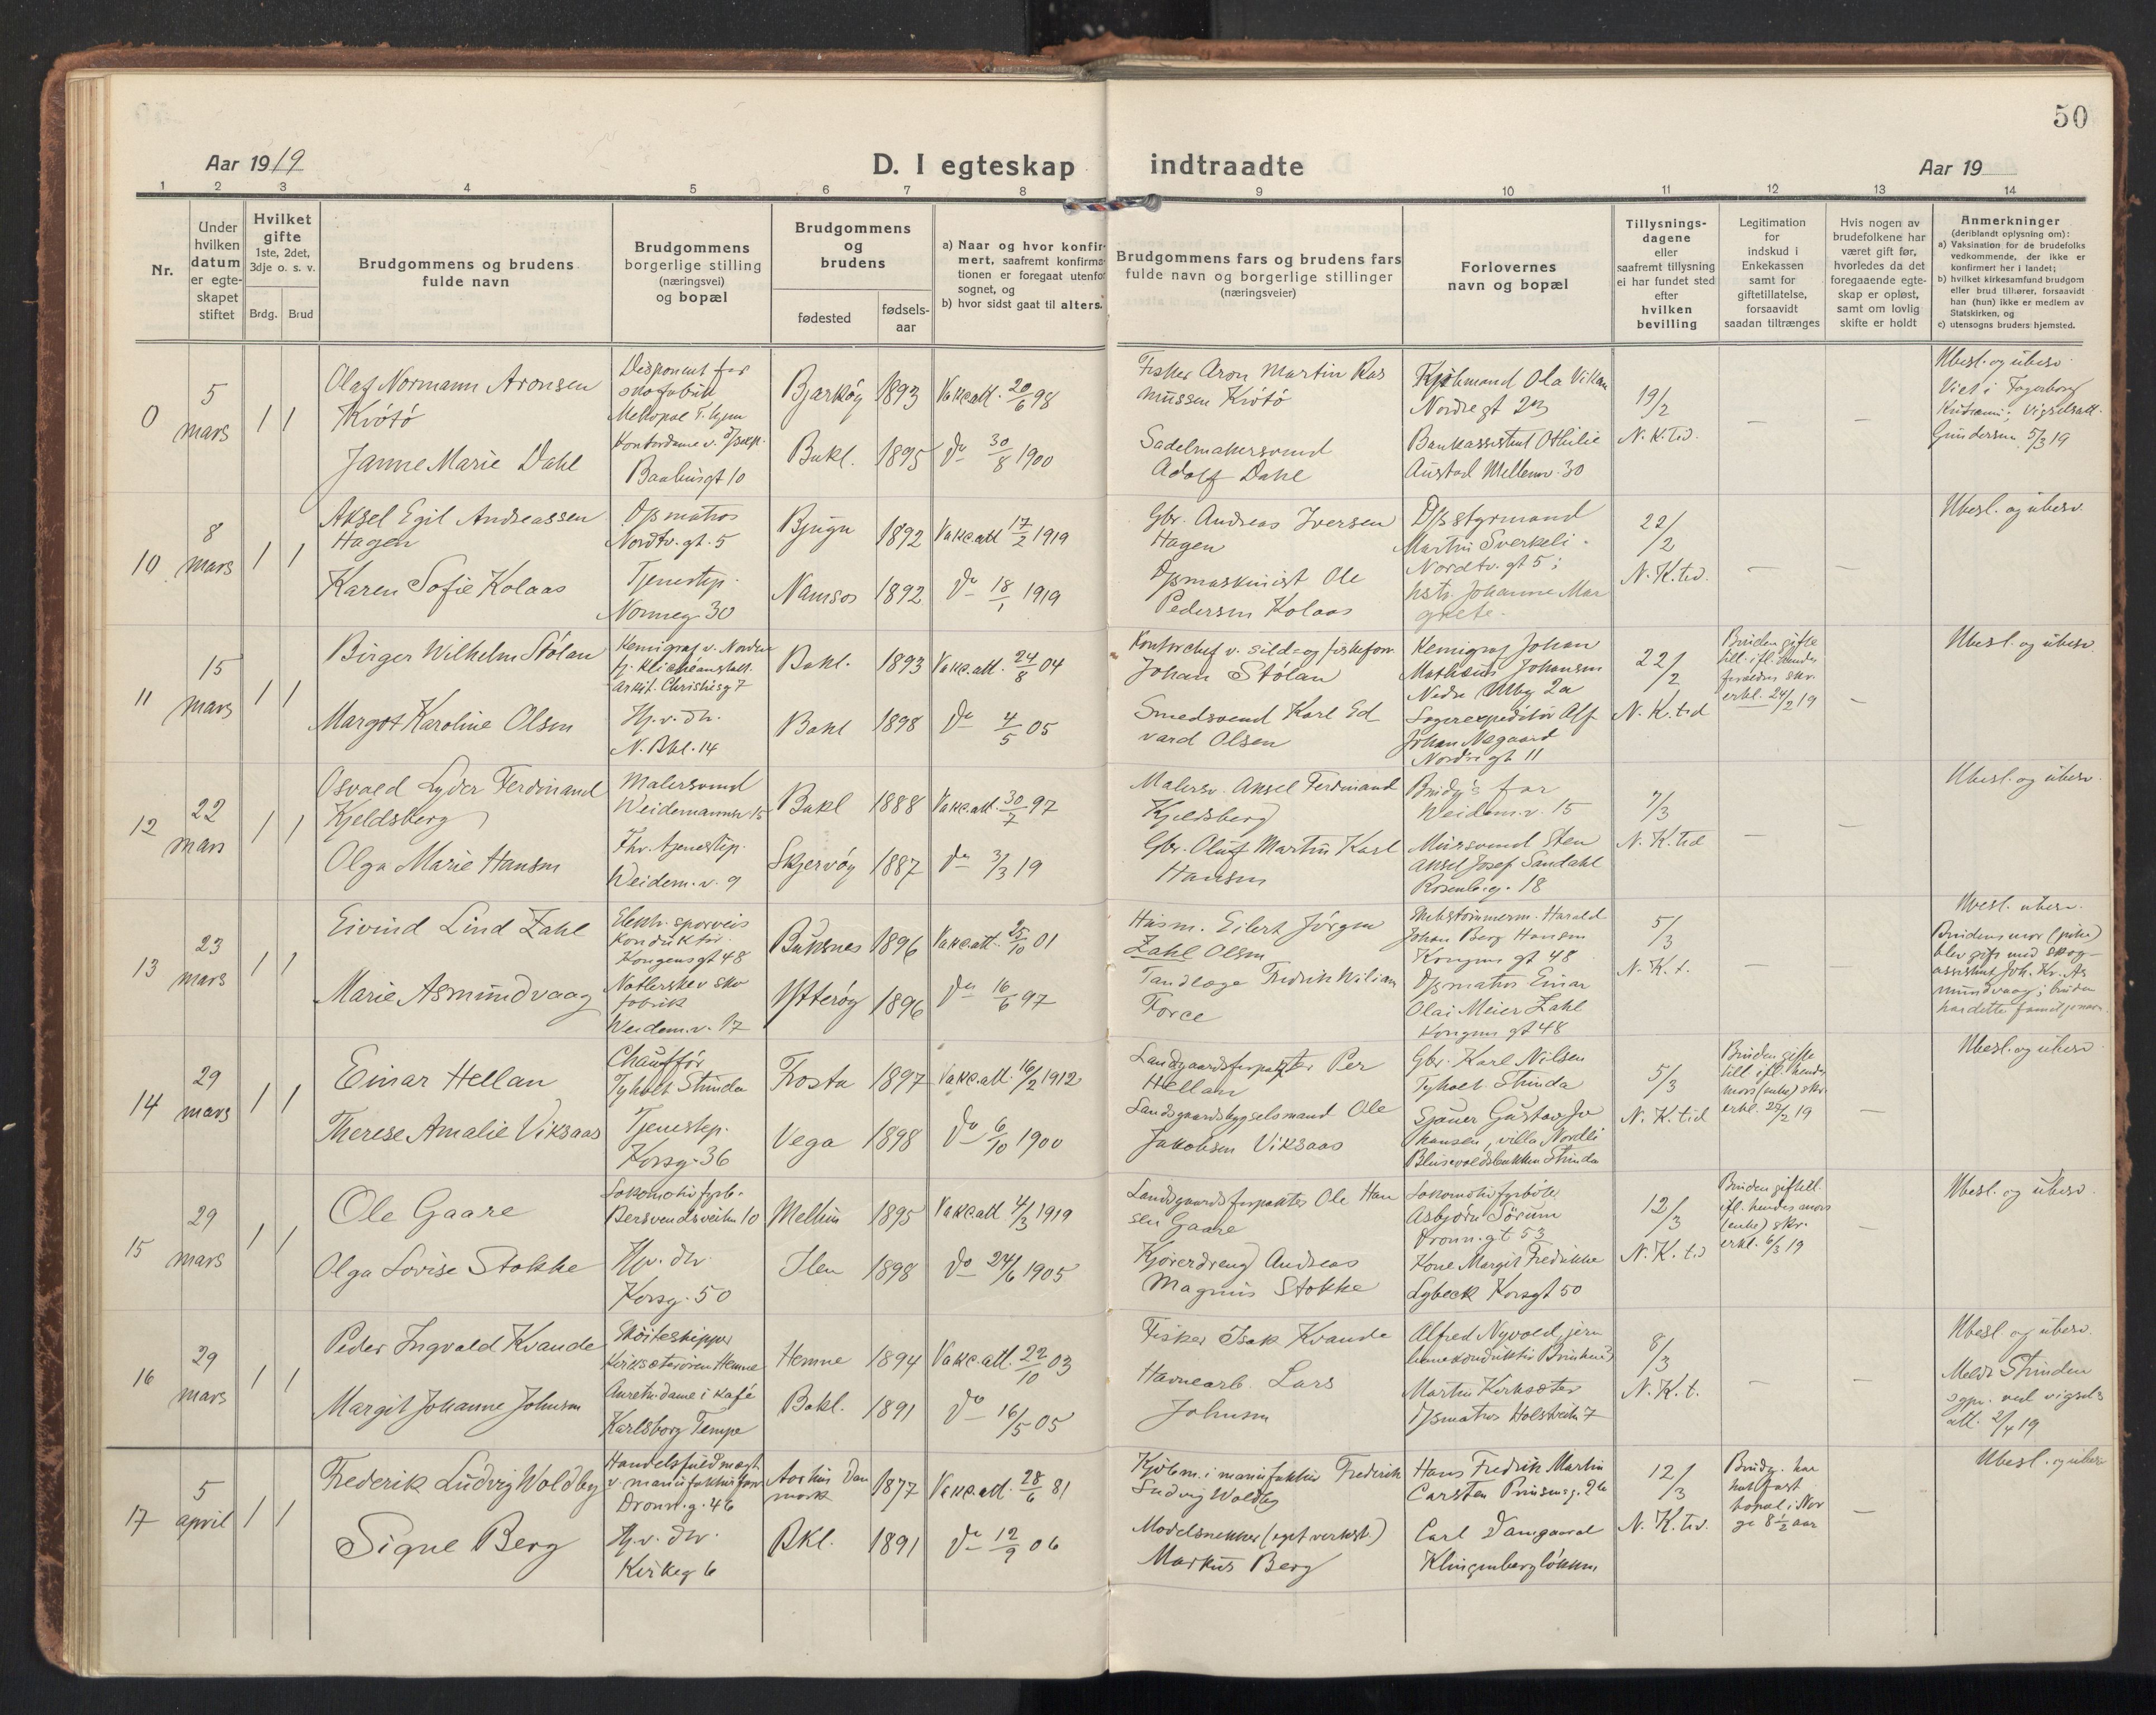 50
Aar 1919
D. I egteskap indtraadte
Aar 19
1 2 3 4 5 6 7 8 9 10 11 12 13 14
Nr.
Under hvilken datum er egteskapet stiftet
Hvilket gifte 1ste, 2det, 3dje o. s. v.
Brdg. Brud
Brudgommens og brudens fulde navn
Brudgommens borgerlige stilling (næringsvei) og bopæl
Brudgommens og brudens
fødested
fødsels-aar
a) Naar og hvor konfirmert, saafremt konfirmationen er foregaat utenfor sognet, og
b) hvor sidst gaat til alters.
Brudgommens fars og brudens fars fulde navn og borgerlige stillinger (næringsveier)
Forlovernes navn og bopæl
Tillysnings-dagene eller saafremt tillysning ei har fundet sted efter hvilken bevilling
Legitimation for indskud i Enkekassen samt for giftetillatelse, forsaavidt saadan tiltrænges
Hvis nogen av brudefolkene har været gift før, hvorledes da det foregaaende egteskap er opløst, samt om lovlig skifte er holdt
Anmerkninger (deriblandt oplysning om):
a) Vaksination for de brudefolks vedkommende, der ikke er konfirmert her i landet;
b) hvilket kirkesamfund brudgom eller brud tilhører, forsaavidt han (hun) ikke er medlem av Statskirken, og
c) utensogns bruders hjemsted.
0
5 mars
1 1
Olaf Normann Aronsen
Krøtø
Disponent for
skofabrik
Bjarkøy 1893 Vakc.att. 20/6 98
Fisker Aron Martin Ras
mussen Krøtø
Kjøbmand Ola Vikan
Nordregt 23
19/2
N. K. Tid.
— —
Ubesl. og ubesv.
Viet i Fagerborg
Vigselsatt.
Gundersen 5/3 19
Janne Marie Dahl
Kontordame v.
Baahusgt 10
Bakl. 1895 do 30/8 1900
Sadelmakersvend
Adolf Dahl
Bankassistent Othilie
Austad Mellemv. 30
10
8 mars
1 1
Aksel Egil Andreassen
Hagen
D/s matros
Nordtv. gt. 5
Bjugn 1892 Vakc.att 17/2 1919
Gbr. Andreas Iversen
Hagen
D/s styrmand
Martin Sverkeli
Nordtv. gt 5;
22/2
N. K. tid.
— —
Ubesl. og ubesv.
Karen Sofie Kolaas
Tjenestep.
Nonneg. 30
Namsos 1892 do 18/1 1919
D/s maskinist Ole
Pedersen Kolaas
hstr. Johanne Mar
grete
11
15 mars
1 1
Birger Wilhelm Stølan
Kemigraf v. Norden
fj. klichéanstalt.
Arkit. Christiesg 7
Bakl. 1893 Vakc.att. 24/8 04
Kontorchef v. sild og fiskeforr.
Johan Stølan
Kemigraf Johan
Mathæus Johansen
Nedre Ulby 2a
22/2
N. K. tid
Bruden gifte
till. ifl. hendes
forældres skr.
erkl. 24/2 19
—
Ubesl. og ubesv.
Margot Karoline Olsen
Hj. v. dr.
N. Bkl. 14
Bakl 1898 do 4/5 05
Smedsvend Karl Ed
vard Olsen
Lagerexpeditør Alf
Johan Negaard
Nordregt 11
12
22 mars
1 1
Osvald Lyder Ferdinand
Kjeldsberg
Malersvend
Weidemannsv 15
Bakl 1888 Vakc.att. 30/7 97
Malersv. Aksel Ferdinand
Kjeldsberg
Brudg's far
Weidem. v. 15
7/3
N. K. Tid
— —
Ubesl. og ubesv.
Olga Marie Hansen
Fhv. tjenestep.
Weidem. v. 9
Skjervøy 1887 do 3/3 19
Gbr. Oluf Martin Karl
Hansen
Mursvend Sten
Aksel Josef Sandahl
Rosenb.g. 18
13
23 mars
1 1
Eivind Lind Zahl
Elektr. sporveis
konduktør
Kongensgt 48
Buksnes 1896 Vakc.att. 25/10 01
Husm. Eilert Jørgen
Zahl Olsen
Skibstømmerm. Harald
Johan Berg Hansen
Kongens gt 48
5/3
N. K. t.
— —
Ubesl. ubesv.
Brudens mor (pike)
blev gift med skog-
assistent Joh. Kr. As
mundvaag; bruden
har dette familjenavn.
Marie Asmundvaag
Natlerske v sko
fabrik
Weidem. v. 17
Ytterøy 1896 do 16/6 97
Tandlæge Fredrik Wiliam
Force
D/s matros Einar
Olai Meier Zahl
Kongens gt 48
14
29 mars
1 1
Einar Hellan
Chauffør
Tyholt Strinda
Frosta 1897 Vakc.att. 16/2 1912
Landgaardsforpagter Per
Hellan
Gbr. Karl Nilsen
Tyholt. Strinda
5/3
N. K. tid
Bruden gifte
till ifl. hendes
mors (enke) skr.
erkl. 22/2 19
—
Ubesl. og ubesv.
Therese Amalie Viksaas
Tjenestep.
Korsg. 36
Vega 1898 do 6/10 1900
Landgaardsbygselsmand Ole
Jakobsen Viksaas
Sjauer Gustav Jo
hansen, villa Nordli
Blusevoldsbakken Strinda
15
29 mars
1 1
Ole Gaare
Lokomotivfyrb.
Bersvendsveita 10
Melhus 1895 Vakc.att 4/3 1919
Landgaardsforpakter Ole Han
sen Gaare
Lokomotivfyrbøter
Asbjørn Sørum
Dronn. gt 53
12/3
N. K. tid
Bruden giftetill.
ifl. hendes mors
(enke) skr.
erkl. 6/3 19
—
Ubesl. og ubesv.
Olga Lovise Stokke
Hj. v. dr.
Korsg. 50
Ilen 1898 do 24/6 1905
Kjøredreng Andreas
Magnus Stokke
Kone Margit Fredrikke
Lybeck Korsgt 50
16
29 mars
1 1
Peder Ingvald Kvande
Skøiteskipper
Kirksæterøren Hemne
Hemne 1894 Vakc.att. 22/10 03
Fisker Isak Kvande
Alfred Nyvold, jern
banekonduktør
8/3
N. K. t.
— —
Ubesl og ubesv.
Meldt Strinden
sgpr. ved vigsels
att. 2/4 19
Margit Johanne Johnsen
Anretn. dame i kafé
Karlsborg Tempe
Bakl. 1891 do 16/5 05
Havnearb. Lars
Johnsen
Martin Kirksæter
D/s matros Holstveita 7
17
5 april
1 1
Frederik Ludvig Woldby
Handelsfuldmægt.
v. manufakturforr.
Dronn. g. 46
Aarhus Dan
mark
1877 Vakc.att. 28/6 81
Kjøbm. i manufaktur Frederik
Ludvig Woldby
Hans Fredrik Martin
Carsten Prinsensg. 26
12/3
N. K. Tid.
Brudg. har
hat fast
bopæl i Nor
ge 8 1/2 aar
—
Ubesl. og ubesv
Signe Berg
Hj. v. dr.
Kirkeg 6
Bkl. 1891 do 12/9 06
Modelsnekker (eget verkst.)
Markus Berg
Carl Damgaard
Klingenbergløkken